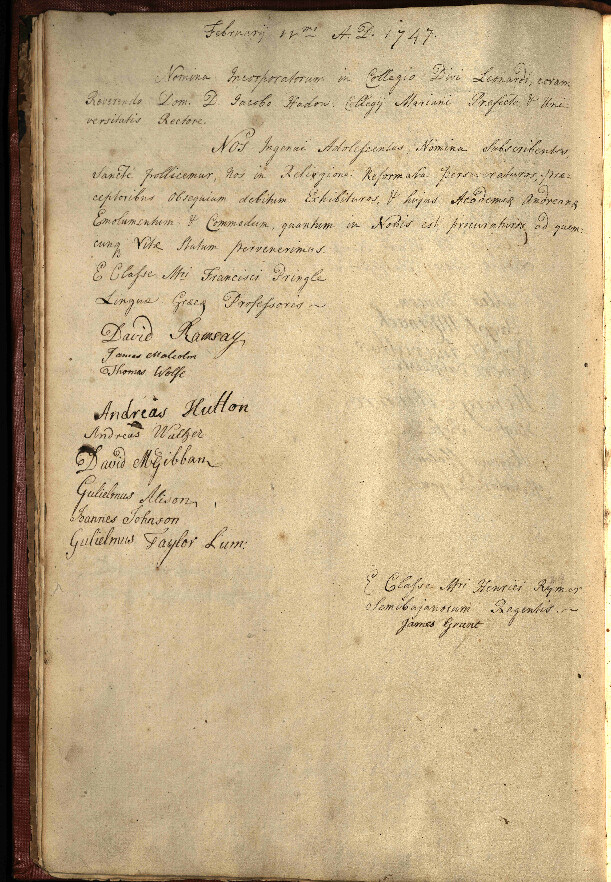 February 12mi A.D. 1747.
Nomina Incorporatorum in Collegio Divi Leonardi, coram
Reverendo Dom. D. Jacobo Hadow. Collegij Mariani Præfecto & Uni-
versitatis Rectore.
NOS Ingenui Adolescentes, Nomina Subscribentes,
Sancte pollicemur, Nos in Religione Reformata perseveraturos, præ-
ceptoribus Obsequium debitum Exhibituros, & hujus Academiæ Andreanæ
Emolumentum & Commodum, quantum in Nobis est, procuraturos, ad quem-
cunq Vitæ Statum pervenerimus.
E Classe Mri Francisci Pringle
Linguæ Græcæ Professoris
David Ramsay
James Malcolm
Thomas Wolfe
Andreas Hutton
Andreas Walker
David McGibban
Gulielmus Alison
Joannes Johnson
Gulielmus Taylor Lum:
E Classe Mri Henrici Rymer
Semibajanorum Regentis
James Grant